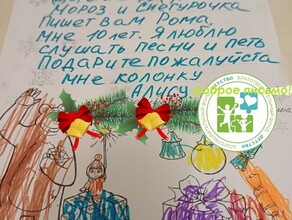 Мороз и Снегурочка
Пишет вам Рома.
Мне 10 лет. Я люблю
слушать песни и петь
Подарите пожалуйста
мне колонку
Алису.
Доброе письмо!